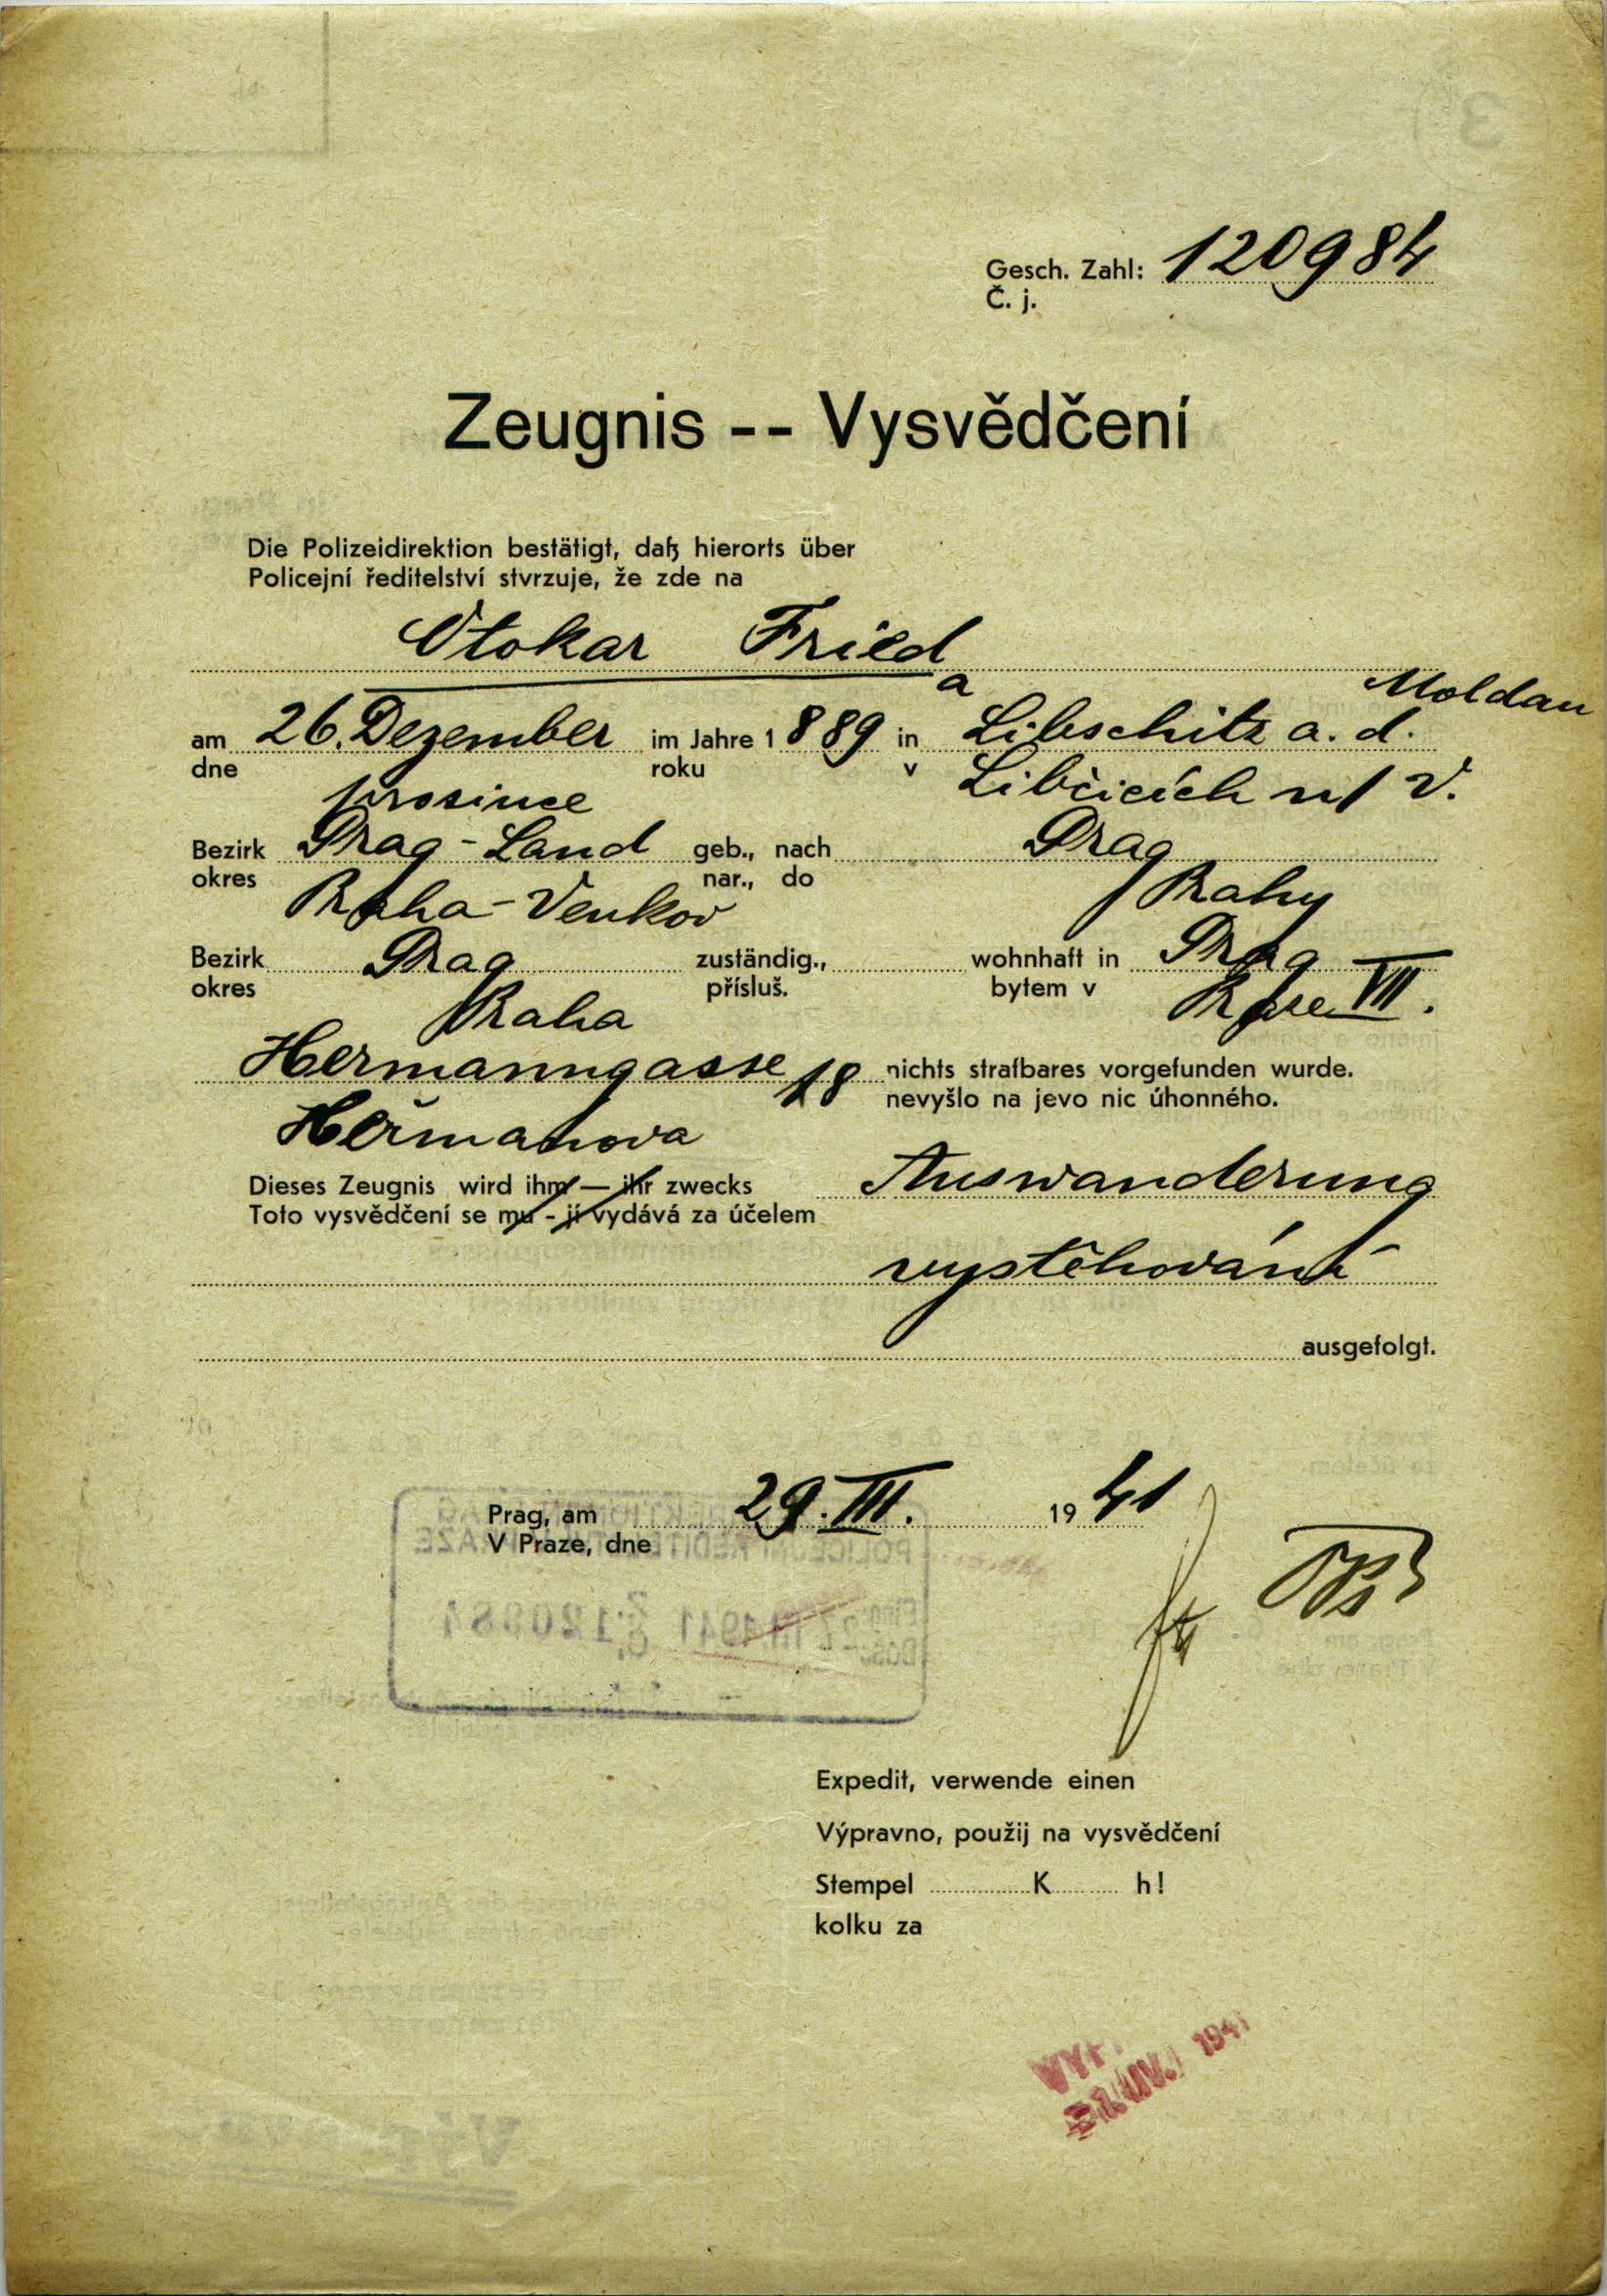 Gesch. Zahl: 120984
Č. j.
Zeugnis -- Vysvědčení
Die Polizeidirektion bestätigt, daß hierorts über
Policejní ředitelství stvrzuje, že zde na
Otokar Fried
a
Moldau
am 26. Dezember im Jahre 1889 in Libschitz a. d.
dne prosince roku v Libčicích n/V.
Bezirk Prag-Land geb., nach Prag
okres Praha-Venkov nar., do Prahy
Bezirk Prag zuständig., wohnhaft in Prag
okres Praha přísluš. bytem v Praze VII.
Hermanngasse 18 nichts strafbares vorgefunden wurde.
Heřmanova nevyšlo na jevo nic úhonného.
Dieses Zeugnis wird ihm — ihr zwecks Auswanderung
Toto vysvědčení se mu - jí vydává za účelem
vystěhování
ausgefolgt.
Prag, am 29. III. 1941
V Praze, dne
Expedit, verwende einen
Výpravno, použij na vysvědčení
Stempel K h!
kolku za
1941